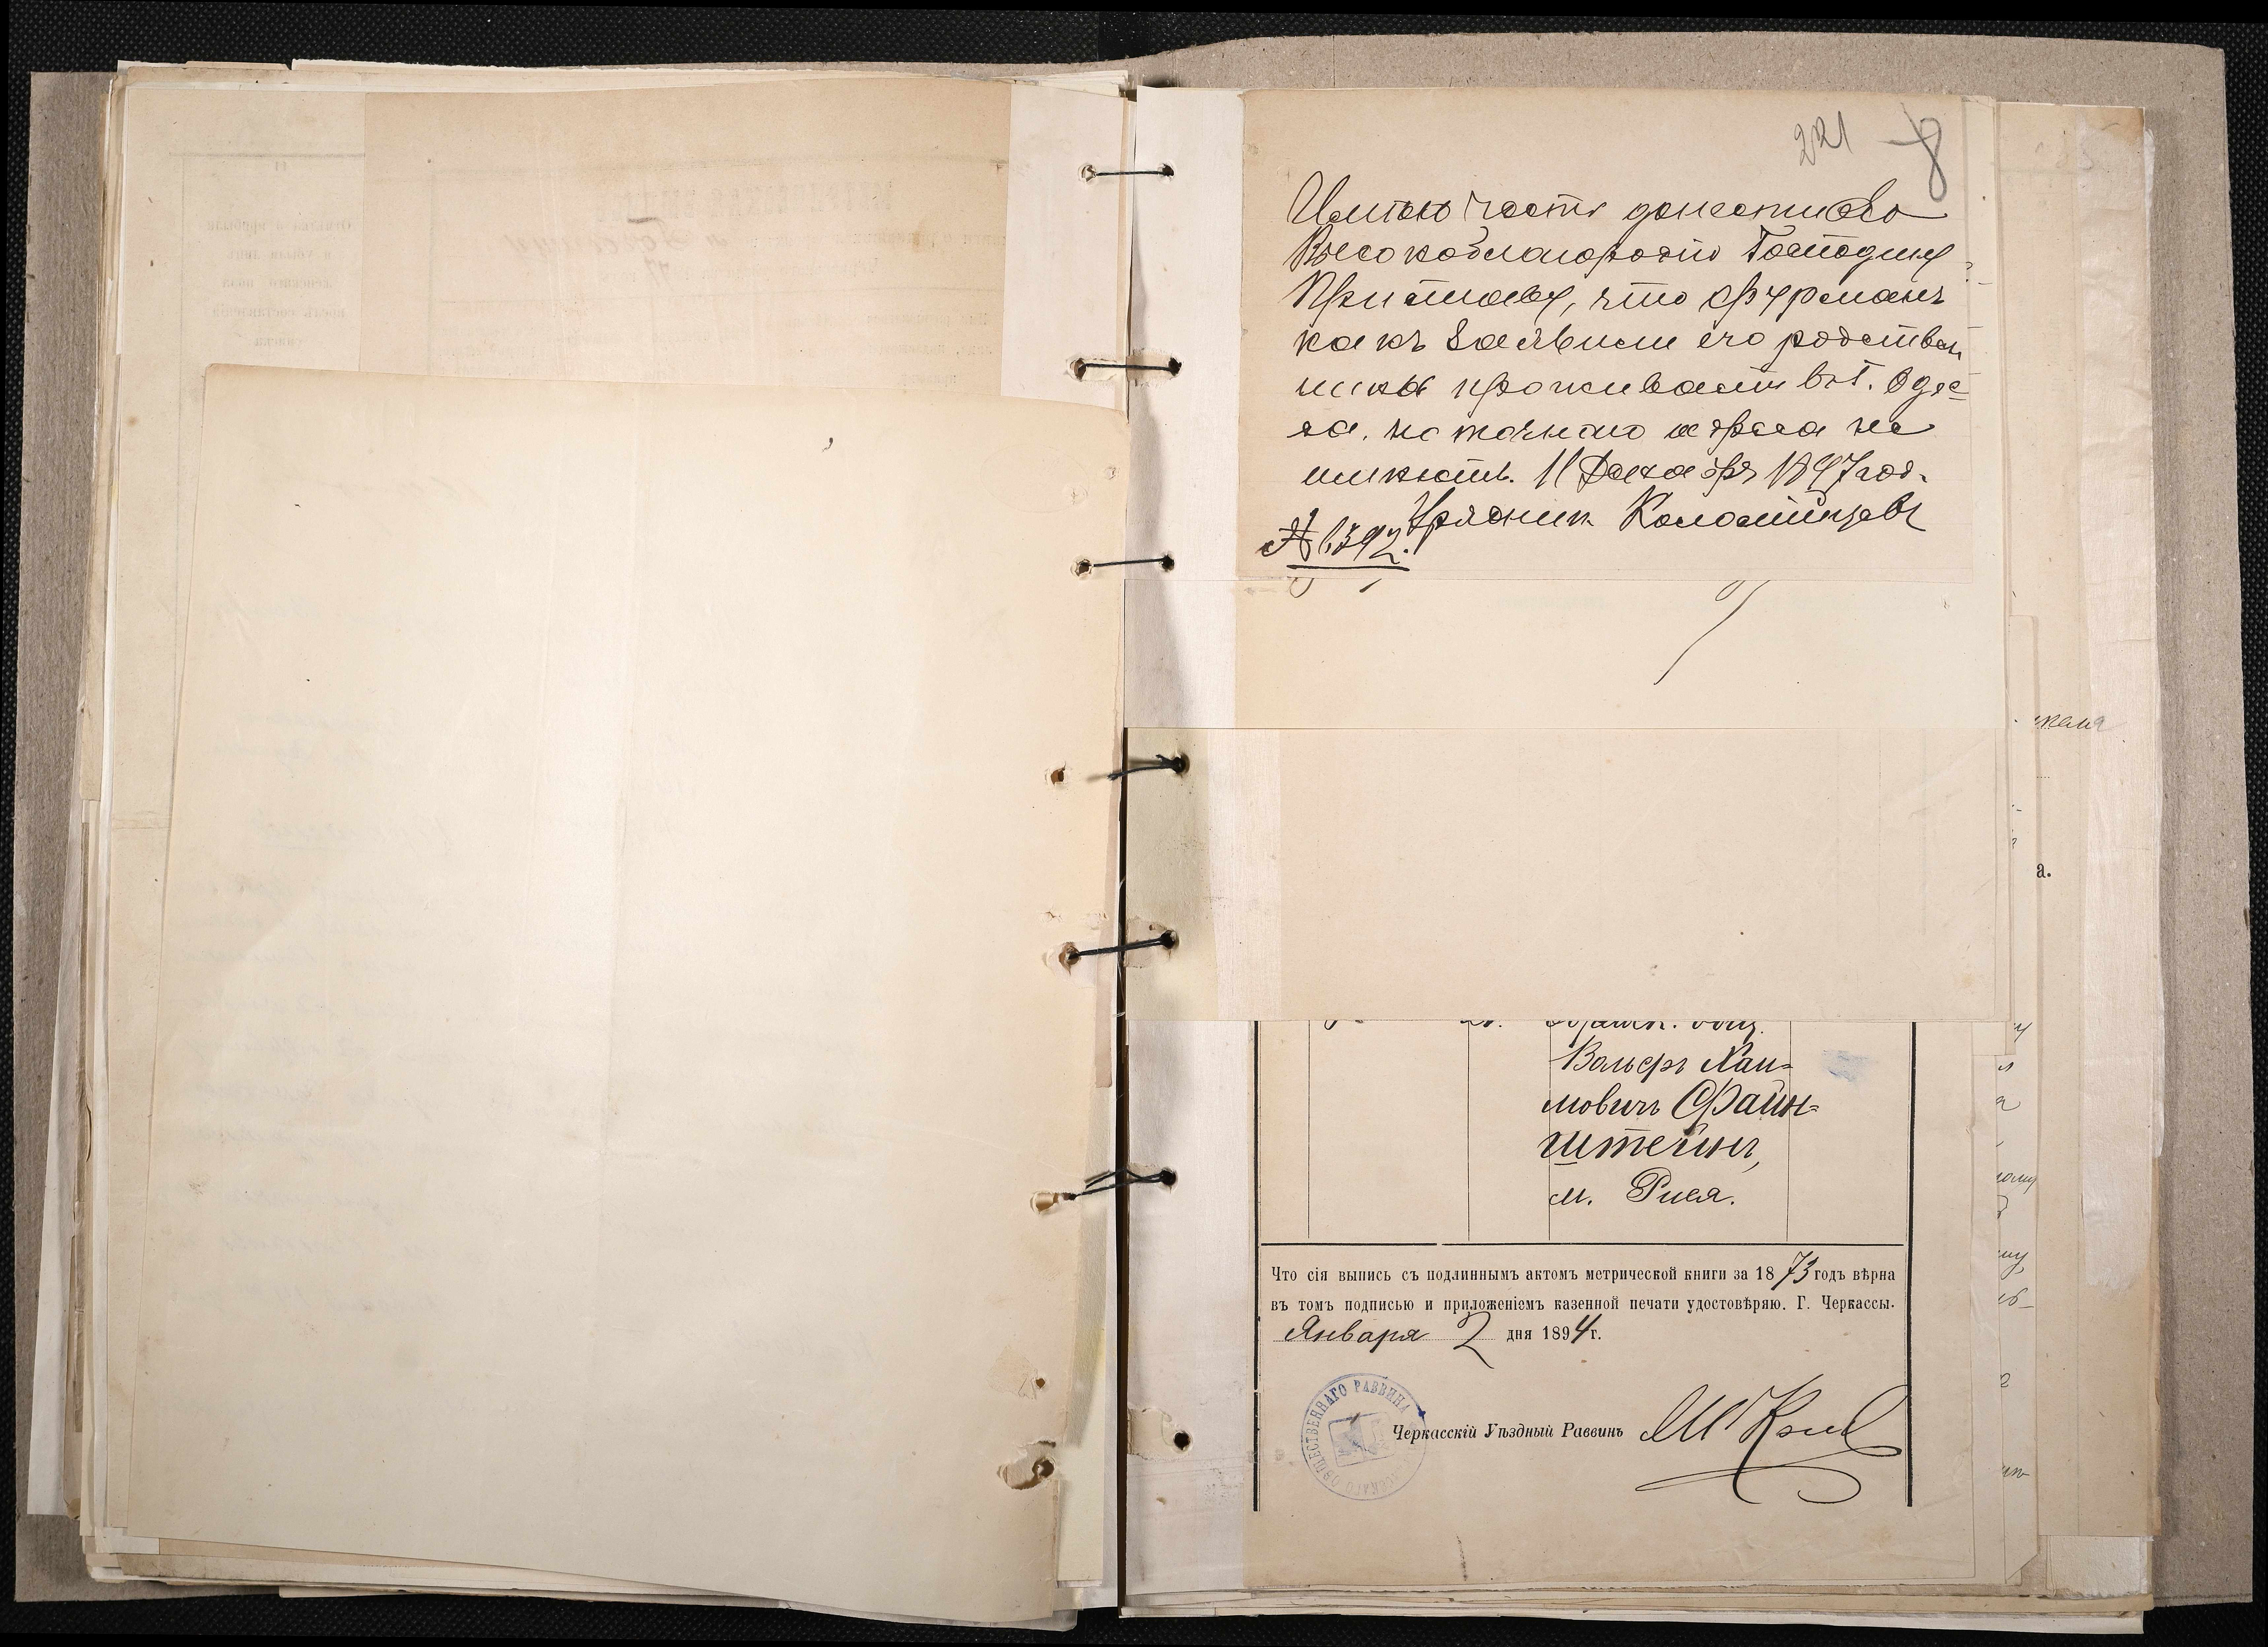 221 8
Имѣю честь донести Его
Высокоблагородію Господину
Приставу, что Фурманъ
какъ заявили его родствен
ники проживаетъ въ г. Одес-
са, но точнаго адреса не
имѣютъ. 11 Декабря 1897 год.
Урядник Коломійцевъ
№ 1392.
Вольфъ Хаи-
мовичъ Файн-
штейнъ,
м. Рися.
Что сія выпись съ подлиннымъ актомъ метрической книги за 1873 годъ вѣрна
въ томъ подписью и приложеніемъ казенной печати удостовѣряю. Г. Черкассы.
Января 2 дня 1894 г.
ОБЩЕСТВЕННАГО РАВВИНА
Черкасскій Уѣздный Раввинъ
а.